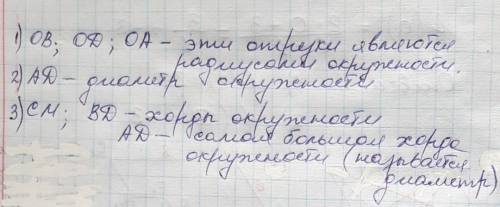 1) ОВ; ОД; ОА - эти отрезки являются
радиусами окружности.
2) АД - диаметр окружности
3) СМ; ВД - хорды окружности
АД - самая большая хорда
окружности (называется
диаметр)